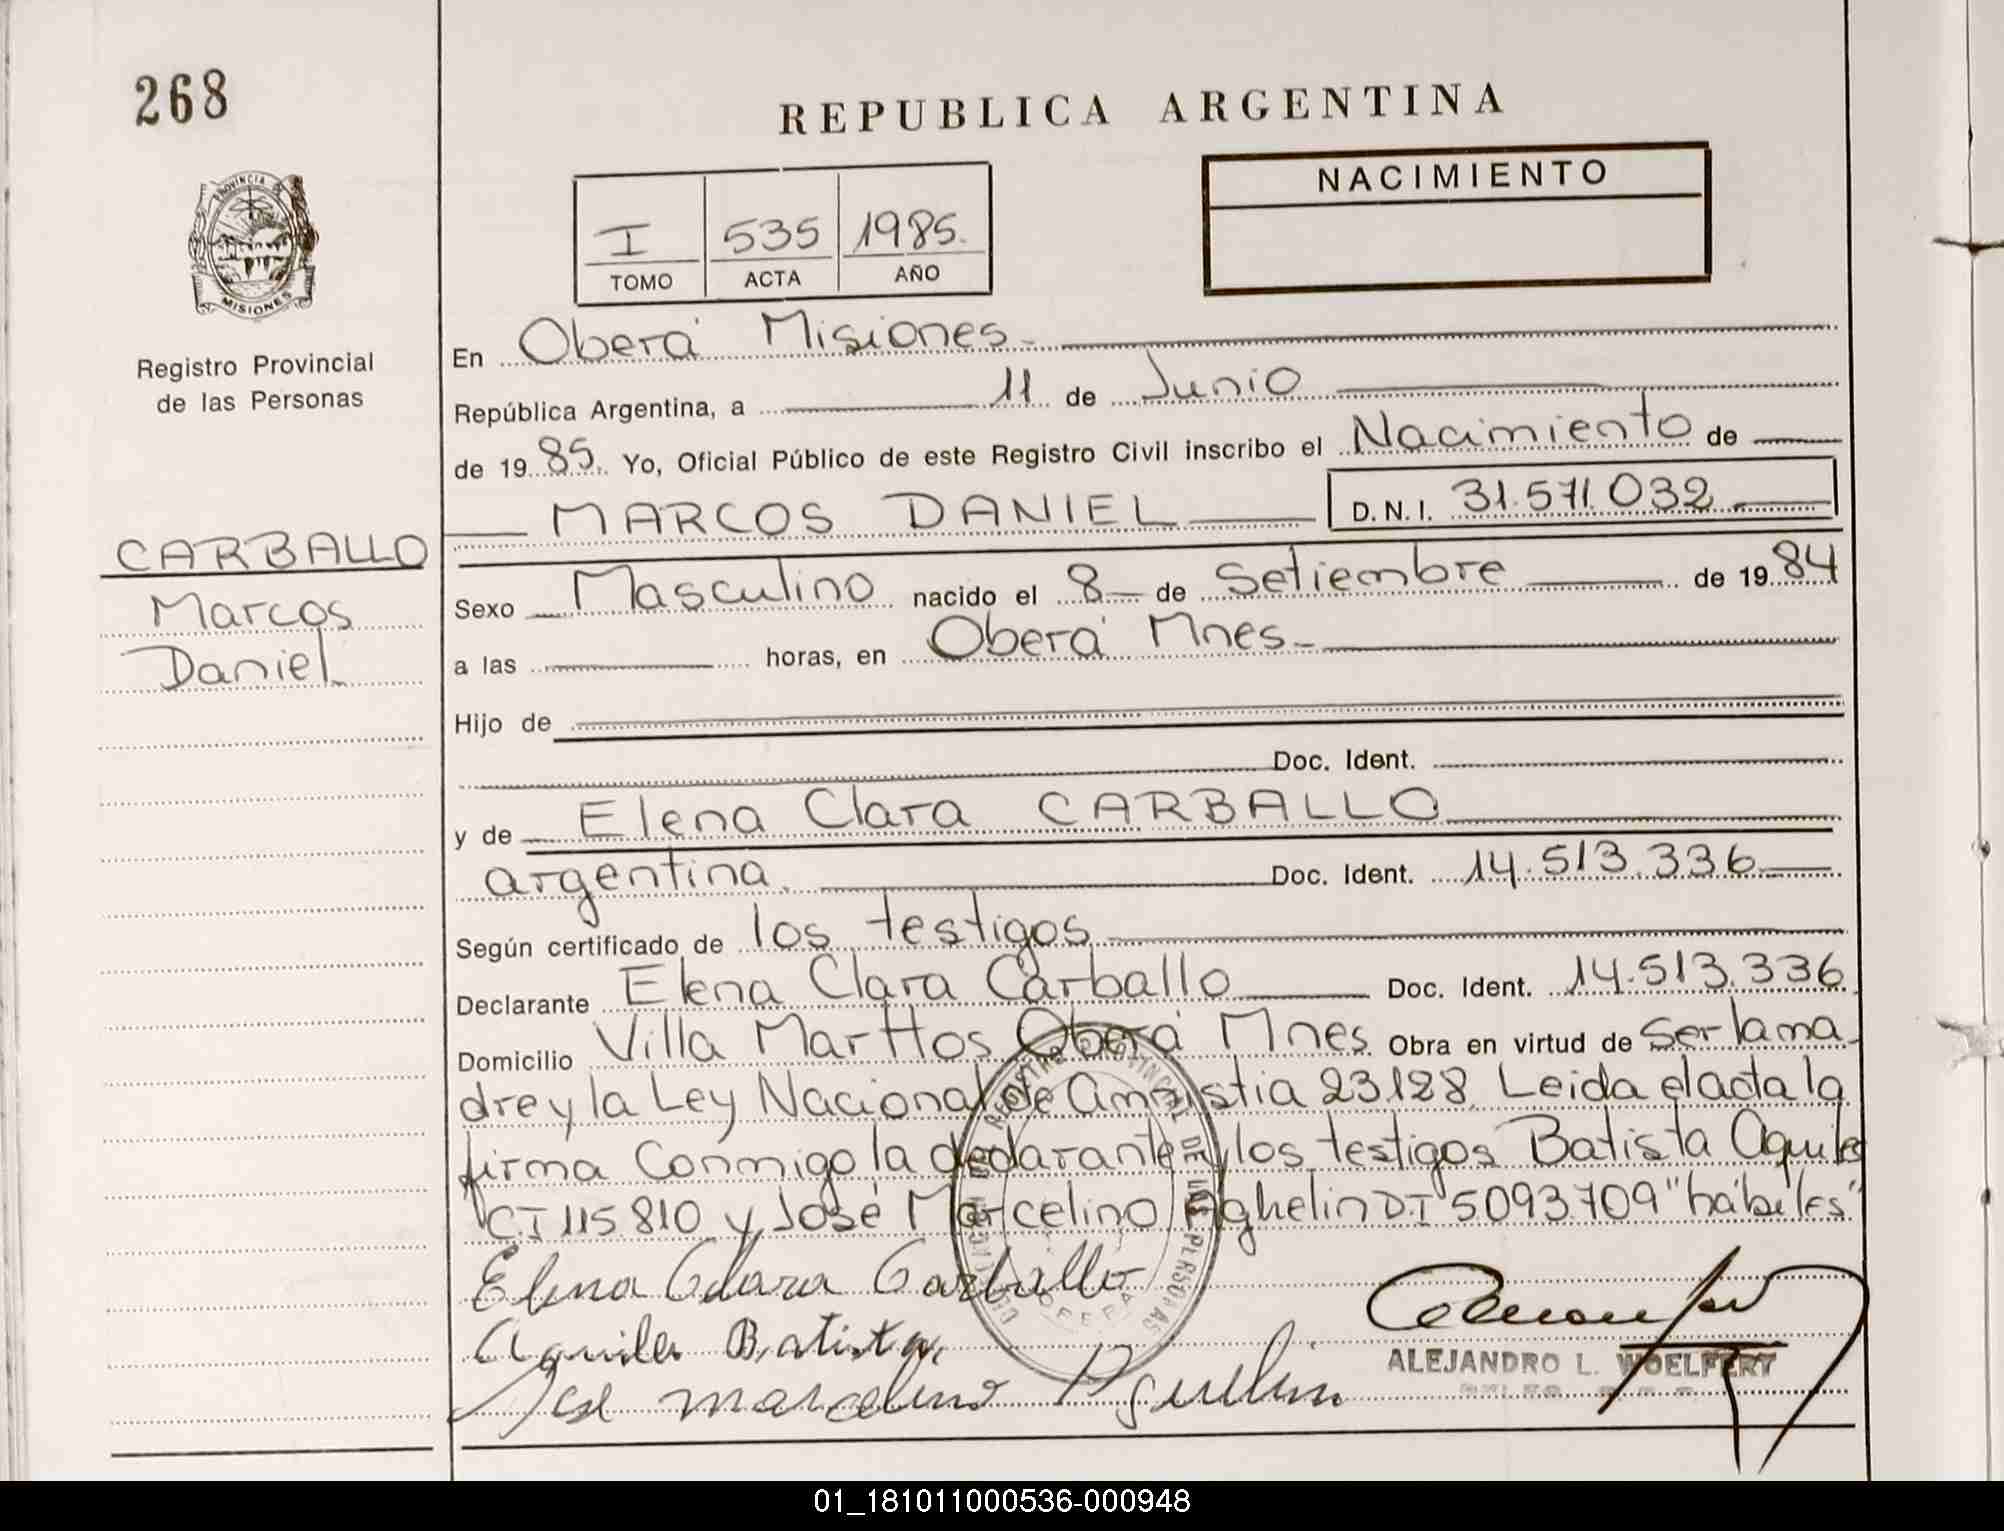 268
REPUBLICA ARGENTINA
NACIMIENTO
I 535 1985.
TOMO ACTA AÑO
PROVINCIA DE
MISIONES
Registro Provincial
de las Personas
CARBALLO
Marcos
Daniel
En Oberá Misiones
República Argentina, a 11 de Junio
de 1985. Yo, Oficial Público de este Registro Civil inscribo el Nacimiento de
MARCOS DANIEL D.N.I. 31.571.032
Sexo Masculino nacido el 8 de Setiembre de 1984
a las horas, en Oberá Mnes
Hijo de
Doc. Ident.
y de Elena Clara CARBALLO
argentina Doc. Ident. 14.513.336
Según certificado de los testigos
Declarante Elena Clara Carballo Doc. Ident. 14.513.336
Domicilio Villa Marttos Oberá Mnes Obra en virtud de Ser la ma
dre y la Ley Nacional de amnistia 23.128. Leida el acta la
firma Conmigo la declarante y los testigos Batista Aquiles
C.I 115.810 y José Marcelino Aghelin D.I 5093.709 "hábiles"
Elena Clara Carballo
Aquiles Batista
José marcelino Aguelin
ALEJANDRO L. WOELFERT
REGISTRO PROVINCIAL DE LAS PERSONAS
01_181011000536-000948